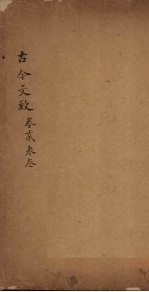 古今文致卷貳卷叁